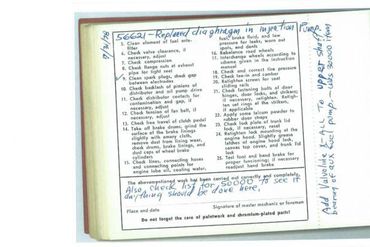 9/3/78
56621 - Replaced diaphragm in injection Pump
3. Clean element of fuel ante-
filter
4. Check valve clearance, if
necessary, adjust
7. Check compression
8. Check flange nuts at exhaust
pipe for tight seat
9. Clean spark plugs, check gap
between electrodes
10. Check breaker points of
distributor and oil pump drive
11. Check distributor contacts for
contamination and gap, if
necessary, adjust
12. Check tension of fan belt, if
necessary, adjust
13. Check free travel of clutch pedal
14. Take off brake drums, grind the
surface of the brake linings
slightly with emery cloth,
remove dust from lining wear,
check drums, brake linings, and
dust caps of wheel brake
cylinders
15. Check lines, connecting hoses
and connecting points for
engine lube oil, cooling water,
fuel, brake fluid, and for
pressure for leaks, worn out
spots, and dents
Rebalance road wheels
17. Interchange wheels according to
scheme given in the instruction
manual
18. Check and correct tire pressure
19. Check toe-in and camber
20. Retighten screws for seat
sliding rails
21. Check fastening bolts of door
hinges, door locks, and strikers;
if necessary, retighten.
22. Apply some talcum powder to
rubber door stops
23. Check lock plate of trunk lid
lock, if necessary, reset
24. Retighten lock mounting at the
engine hood. Slightly grease
latches of engine hood lock,
folding top cover, and trunk lid
lock
25. Test foot and hand brake for
proper functioning; if necessary
readjust hand brake
The abovementioned work has been carried out correctly and completely.
Also, check list for 50000 to see if
anything should be done here.
Place and date
Signature of master mechanic or foreman
Do not forget the care of paintwork and chromium-plated parts!
Add Valvoline F.A. - To upper sharp
bearing of wtr. pump - last 30000 item